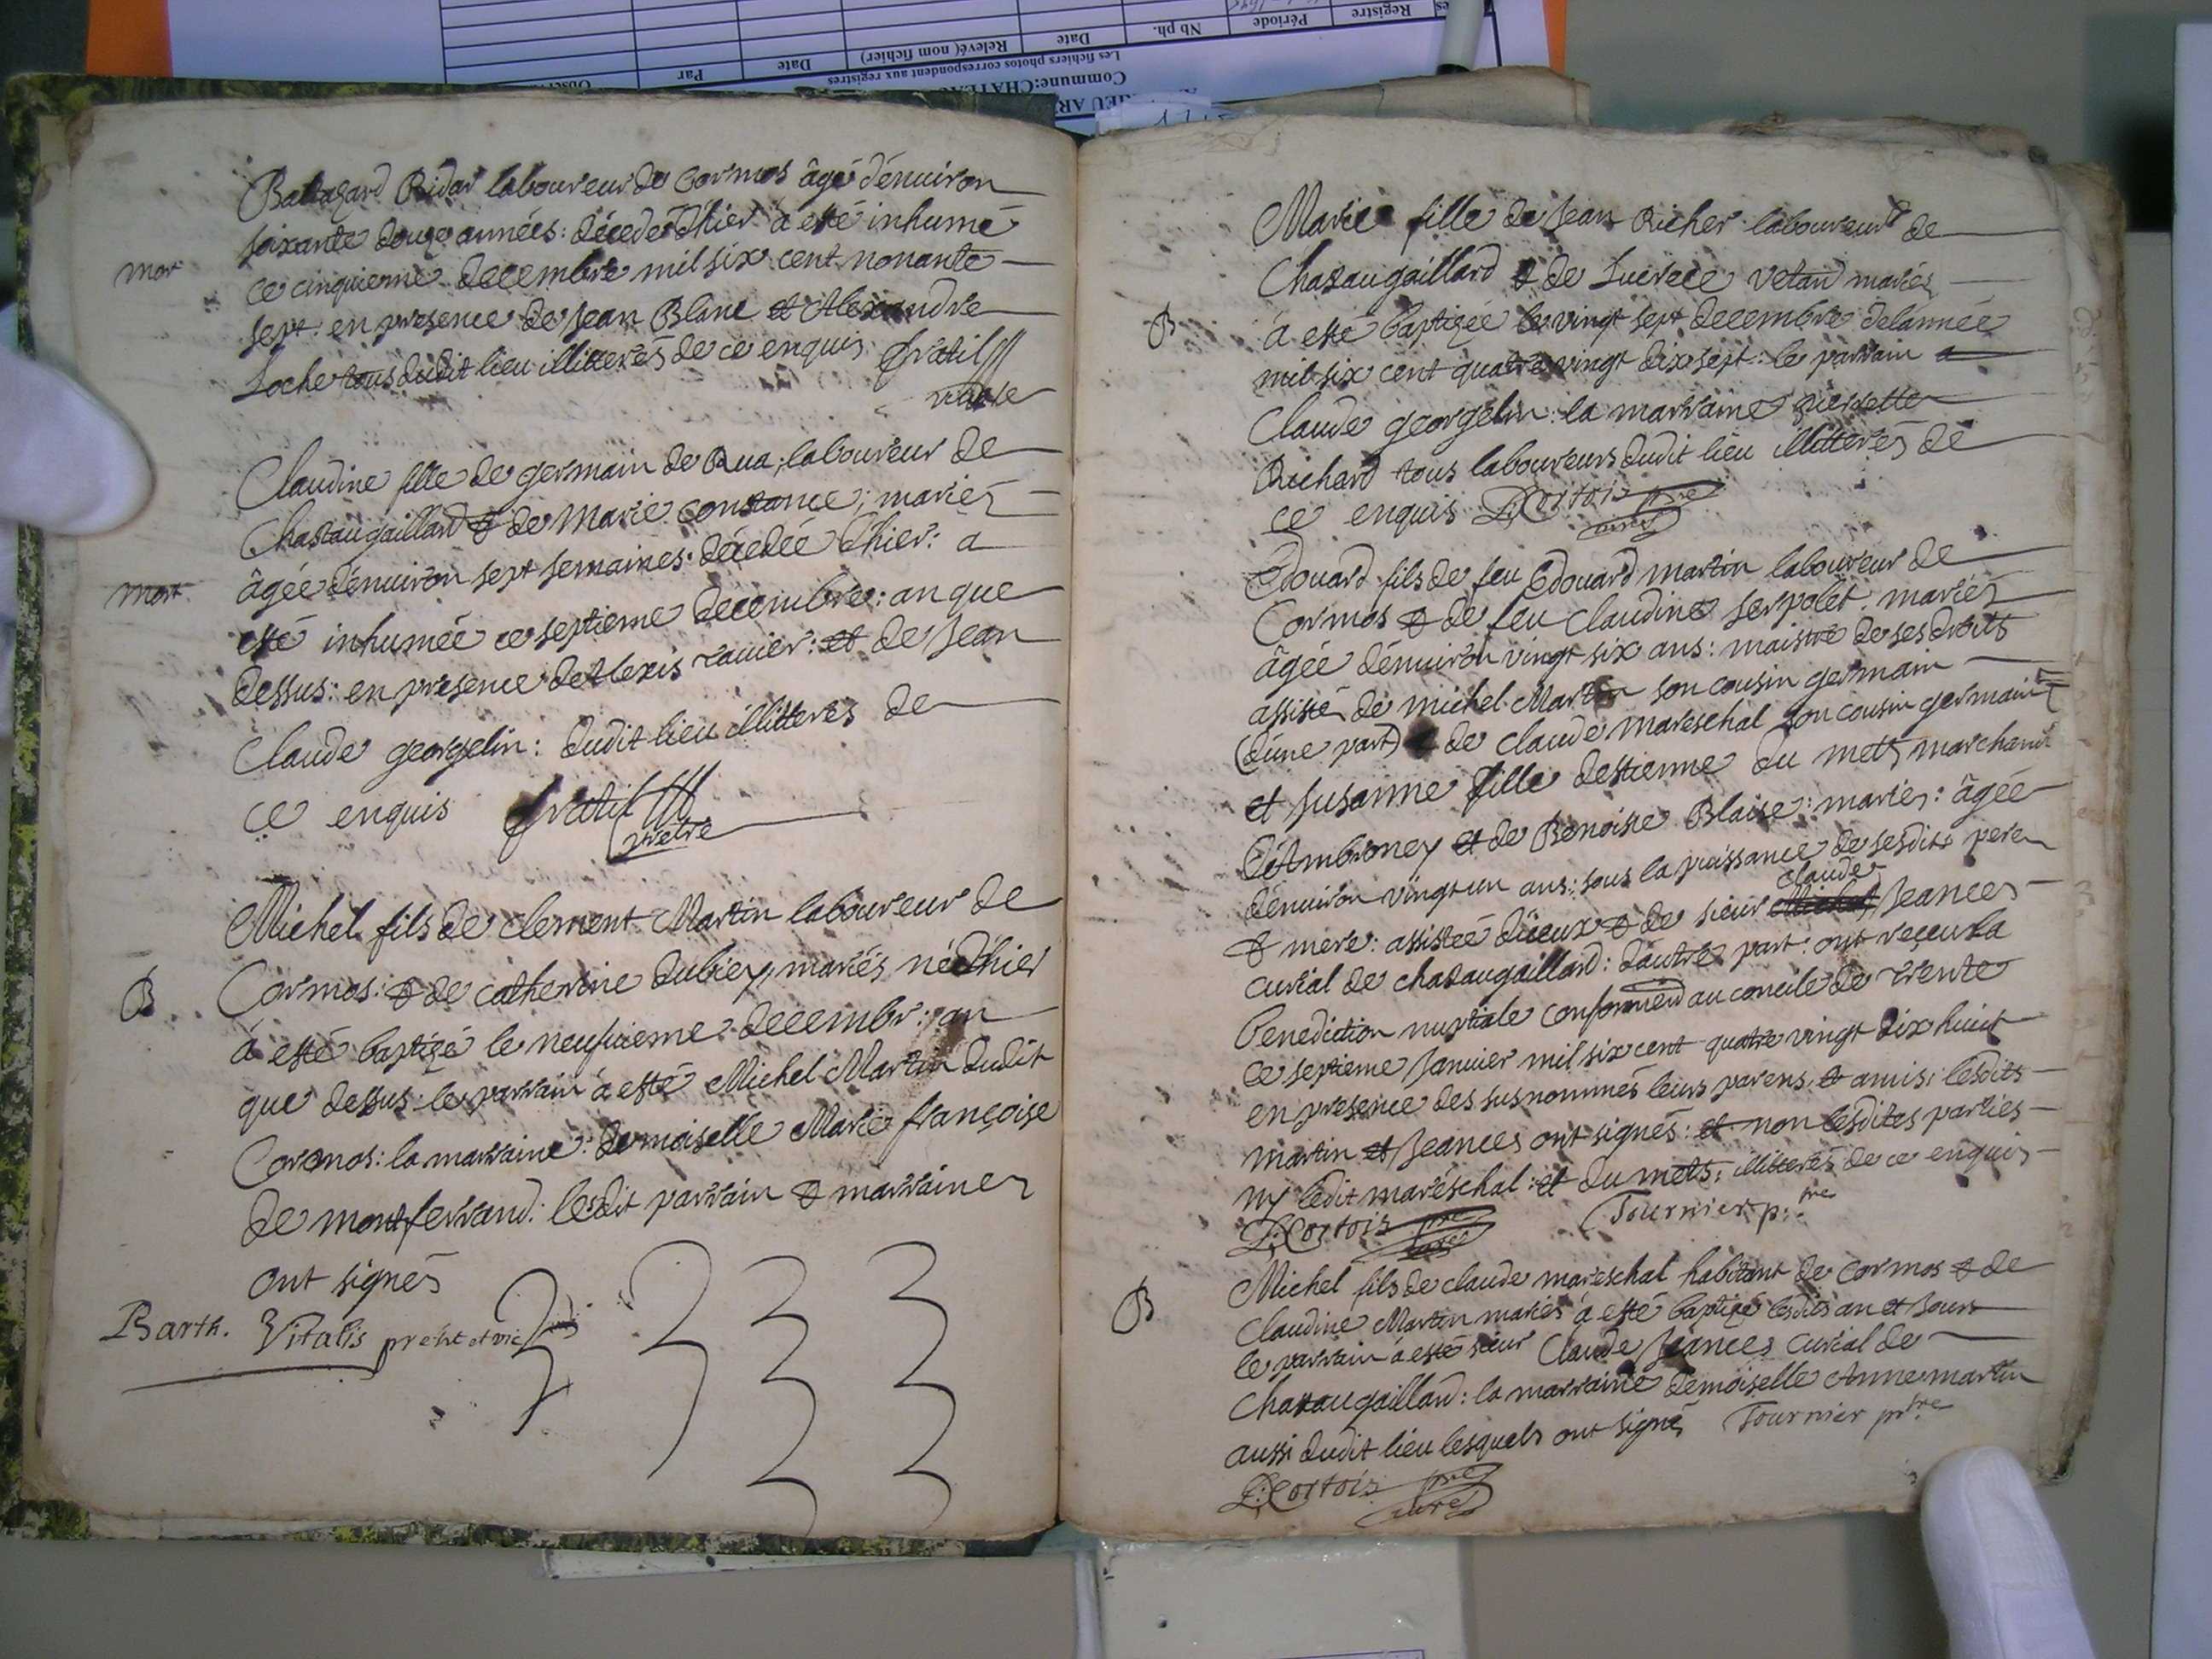 mort
Baltazard Bidar laboureur de Cormos âgé d'enuiron
soixante douze années: décedé d'hier a esté inhumé
ce cinquieme decembre mil six cent nonante
sept: en presence de Jean Blanc et Alexandre
Loche tous dudit lieu illiterés de ce enquis
mort
Claudine fille de germain de Rua, laboureur de
Chastaugaillard & de Marie Constance; mariés
âgée d'enuiron sept semaines. décedée d'hier: a
esté inhumée ce septieme decembre: an que
dessus: en presence de Alexis rauier: et de Jean
Claude georgelin: dudit lieu illitterés de
ce enquis
prêtre
B
Michel fils de clement Martin laboureur de
Cormos: & de catherine dubiey, mariés né d'hier
à esté baptizé le neufuieme decembr: an
que dessus le parrain à esté Michel Martin dudit
Cormos: la marraine: demoiselle Marie françoise
de montferrand: lesdit parrain & marraine
ont signés
Barth. Vitalis prebt et vic
B
Marie fille de Jean Richer laboureur de
Chataugaillard & de Lucrece vetard mariés
à esté baptizée le vingt sept decembre de l'année
mil six cent quatre vingt dix sept: le parrain a
Claude georgelin: la marraine pierrette
Richard tous laboureurs dudit lieu illitterés de
ce enquis D: Cortois pre
curé
Edouard fils de feu Edouard martin laboureur de
Cormos & de feu Claudine serpolet mariés
âgée d'enuiron vingt six ans: maistre de ses droits
assisté de michel Martin son cousin germain
(d'une part) & de claude mareschal son cousin germain
et susanne fille d'estienne du mets marchand
d'Ambroney et de Benoiste Blaise: mariés: âgée
d'enuiron vingt un ans: sous la puissance de sesdits pere
claude
& mere: assistée d'iceux & de sieur Michel Jeances
curial de chataugaillard: d'autre part: ont reçeu la
benediction nuptiale conformem̄ au concile de trente
ce septieme Januier mil six cent quatre vingt dix huict
en presence des susnommés leurs parens & amis: lesdits
martin et Jeances ont signés: et non lesdites parties
ny ledit maréschal: et du mets: illiterés de ce enquis
D: Cortois pre curé Tournier p.tre
B
Michel fils de claude mareschal habitant de Cormos & de
Claudine Martin mariés à esté baptizé lesdits an et Jour
le parrain à esté sieur Claude Jeances curial de
Chataugaillard: la marraine demoiselle Anne martin
aussi dudit lieu lesquels ont signé Tournier ptre
D: Cortois pre
curé
Commune:CHATEAU
Les fichiers photos correspondent aux registres
Registre
Période
Nb ph.
Date
Relevé( nom fichier)
Date
Par